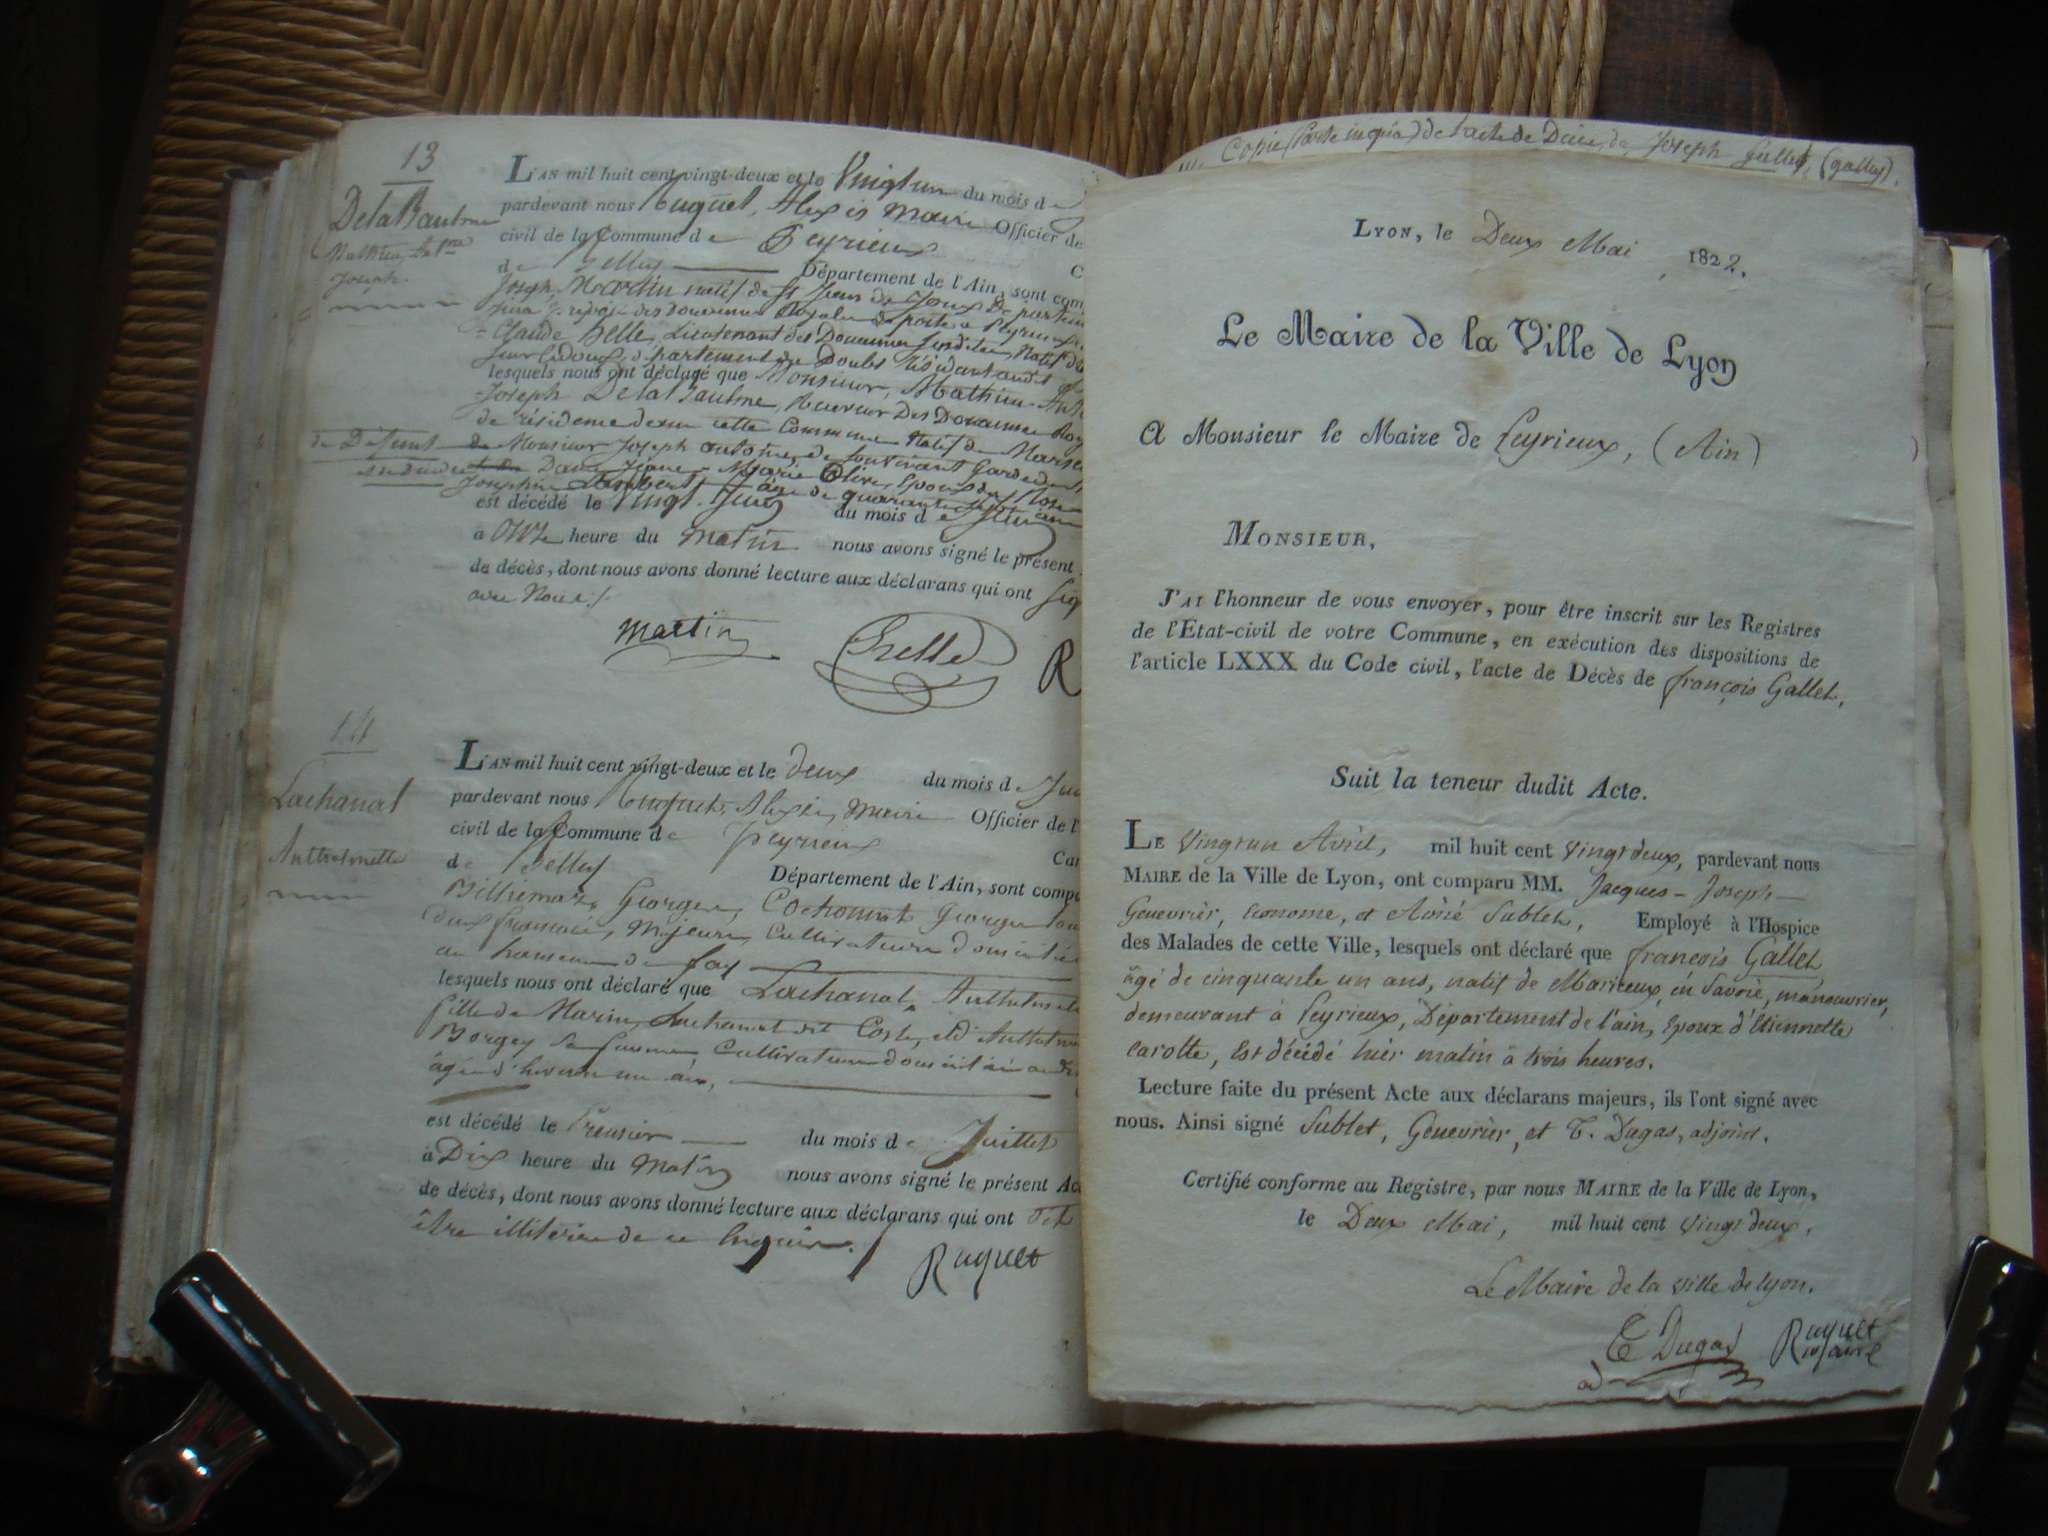 13
Delabaulme
Mathieu
Joseph
L'AN mil huit cent vingt-deux et le vingt un du mois d
pardevant nous Ruguet, Alexis maire Officier de
civil de la Commune de Peyrieux
de Belley Département de l'Ain, sont com
Joseph Martin natif de St
Claude Belle, Lieutenant des Douanes
département du Doubs Résidant audit
lesquels nous ont déclaré que Monsieur, Mathieu
Joseph Delabaulme, Receveur Des Douanes Roy
de résidence dans cette Commune Natif de Marse
de Défunt de Monsieur Joseph antoine, de Garde
Dame Jeanne Marie Olive, Epoux de Rose
Josephine Lambert, âgé de quarante sept ans
est décédé le Vingt un du mois de
a onze heure du matin nous avons signé le présent
de décès, dont nous avons donné lecture aux déclarans qui ont sig
avec Nous ./.
Martin Chelle R
14
Lachanal
Anthelmette
L'AN mil huit cent vingt-deux et le deux du mois de Jui
pardevant nous Ruguet, Alexis, maire Officier de l'
civil de la Commune de Peyrieux Can
de Belley Département de l'Ain, sont compa
Billiemaz, George, Cochonat George tou
deux, Majeurs, Cultivateurs domicilié
au hameau de fay
lesquels nous ont déclaré que Lachanal, Anthelmette
fille de Marin Lachanal dit Coste, et d'Anthelm
Borgey sa femme Cultivateurs domiciliés audit
âgée d'environ un an,
est décédé le Premier du mois de Juillet
à Dix heure du Matin nous avons signé le présent Ac
de décès, dont nous avons donné lecture aux déclarans qui ont dit
être illitérés de ce Enquis.
Ruguet
Copie de l'acte de Décès de Joseph Gallet, (gallay).
LYON, le Deux Mai 1822.
Le Maire de la Ville de Lyon
A Monsieur le Maire de Peyrieux, (Ain)
MONSIEUR,
J'AI l'honneur de vous envoyer, pour être inscrit sur les Registres
de l'Etat-civil de votre Commune, en exécution des dispositions de
l'article LXXX du Code civil, l'acte de Décès de françois Gallet,
Suit la teneur dudit Acte.
LE Vingtun Avril, mil huit cent vingt deux, pardevant nous
MAIRE de la Ville de Lyon, ont comparu MM. Jacques-Joseph
Genevrier, Econome, et Aîné Sublet, Employé à l'Hospice
des Malades de cette Ville, lesquels ont déclaré que françois Gallet
âgé de cinquante un ans, natif de Marieux, en Savoie, manouvrier,
demeurant à Peyrieux, Département de l'ain, Epoux d'Etiennette
Carotte, Est décédé hier matin à trois heures.
Lecture faite du présent Acte aux déclarans majeurs, ils l'ont signé avec
nous. Ainsi signé Sublet, Genevrier, et T. Dugas, adjoint.
Certifié conforme au Registre, par nous MAIRE de la Ville de Lyon,
le Deux Mai, mil huit cent vingt deux.
Le Maire de la ville de Lyon.
T Dugas Ruguet
ad maire